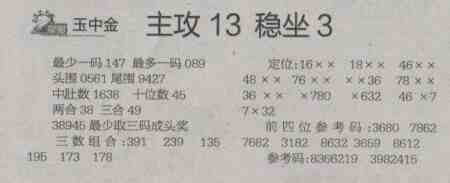 玉中金 主攻13 稳坐3
最少一码147 最多一码089
头围0561 尾围9427
中肚数1638 十位数45
两合38 三合49
38945最少取三码成头奖
三数组合:391 239 135
195 173 178
定位:16×× 18×× 46××
48×× 76×× ××36 78××
36×× ××780 ×632 46×7
7×32
前四位参考码:3680 7862
7682 3182 8632 3659 8612
参考码:8366219 3982415